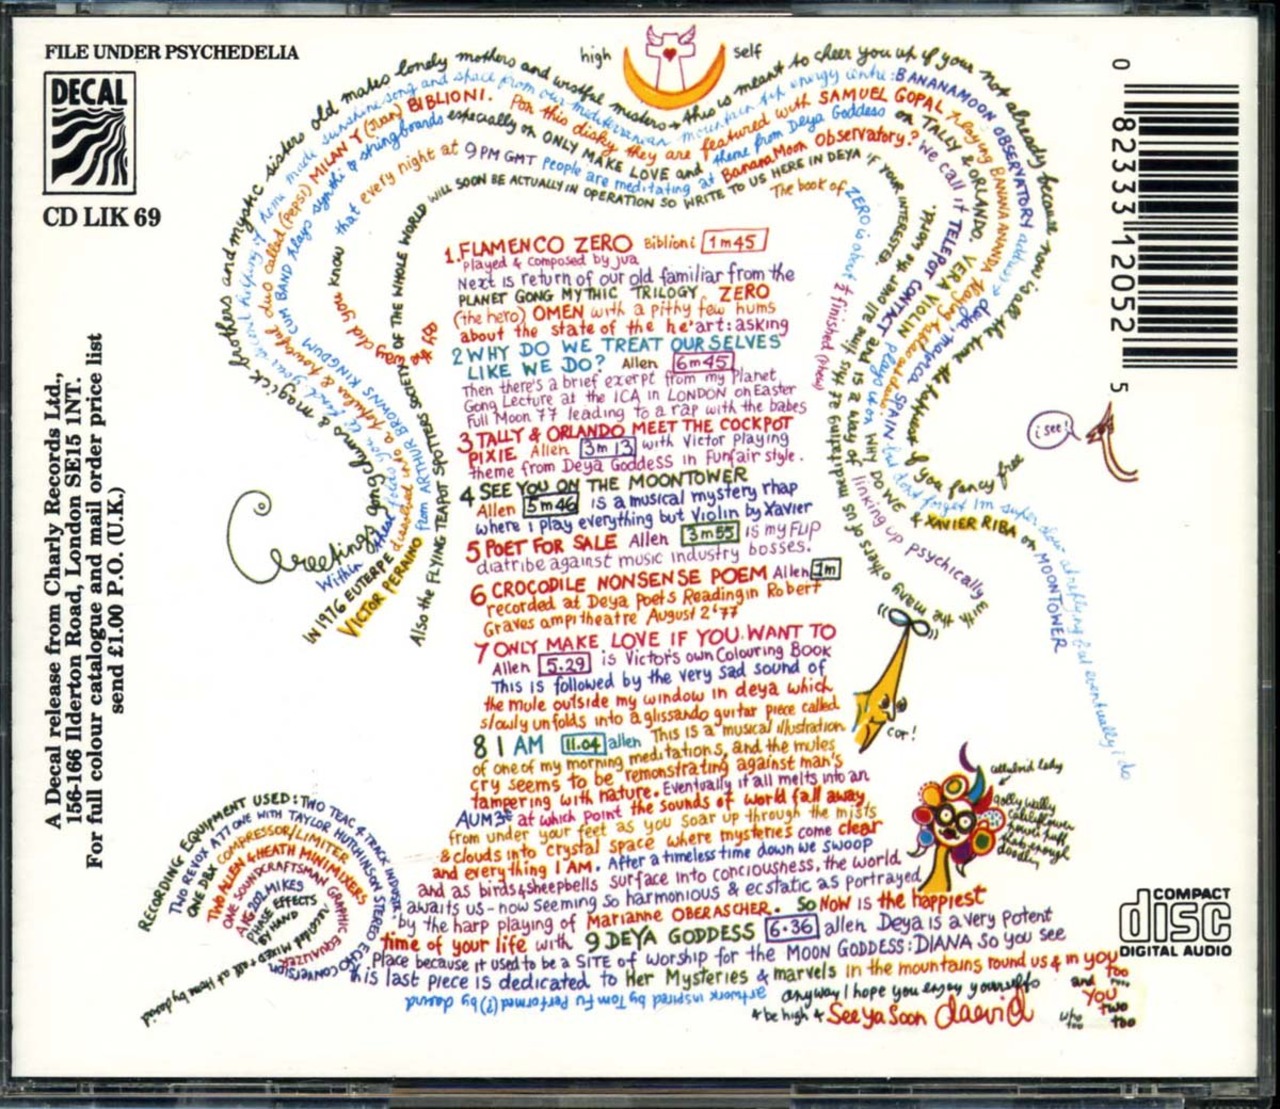 FILE UNDER PSYCHEDELIA
DECAL
CD LIK 69
A Decal release from Charly Records Ltd.,
156-166 Ilderton Road, London SE15 1NT.
For full colour catalogue and mail order price list
send £1.00 P.O. (U.K.)
high self
Greetings gongchums & magick brothers and mystic sisters old mates lonely mothers and wistful misters + this is meant to cheer you up if your not already because now is all the time the happiest if you fancy free
BANANAMOON OBSERVATORY
deya, majorca, SPAIN but dont forget Im super slow at replying but eventually i do
MILAN Y (Juan) BIBLIONI. For this disky they are featured with SAMUEL GOPAL
IN 1976 EUTERPE dissolved into a
VICTOR PERAINO from ARTHUR BROWNS KINGDOM CUM BAND plays synthi & stringboards especially on ONLY MAKE LOVE and theme from Deya Goddess on TALLY & ORLANDO. VERA VIOLIN plays on WHY DO WE & XAVIER RIBA on MOONTOWER
by the way did you know that every night at 9PM GMT People are meditating at BananaMoon Observatory? we call it TELEPOT CONTACT and is a way of linking up psychically with the many others of us
Also the FLYING TEAPOT SPOTTERS SOCIETY OF THE WHOLE WORLD WILL SOON BE ACTUALLY IN OPERATION SO WRITE TO US HERE IN DEYA IF YOUR INTERESTED.
The book of ZERO is about ½ finished (phew)
1. FLAMENCO ZERO Biblioni 1m45
played & composed by jua
Next is return of our old familiar from the
PLANET GONG MYTHIC TRILOGY, ZERO
(the hero) OMEN with a pithy few hums
about the state of the he'art: asking
2 WHY DO WE TREAT OURSELVES
LIKE WE DO? Allen 6m45
Then there's a brief exerpt from my Planet
Gong Lecture at the ICA in LONDON on Easter
Full Moon 77 leading to a rap with the babes
3 TALLY & ORLANDO MEET THE COCKPOT
PIXIE Allen 3m13 with Victor playing
theme from Deya Goddess in Funfair style.
4 SEE YOU ON THE MOONTOWER
Allen 5m46 is a musical mystery rhap
where i play everything but Violin by Xavier
5 POET FOR SALE Allen 3m55 is my FLIP
diatribe against music industry bosses.
6 CROCODILE NONSENSE POEM Allen 1m
recorded at Deya Poets Reading in Robert
Graves ampitheatre August 2'77
7 ONLY MAKE LOVE IF YOU WANT TO
Allen 5.29 is Victor's own Colouring Book
This is followed by the very sad sound of
the mule outside my window in deya which
slowly unfolds into a glissando guitar piece called
8 I AM 11.04 allen This is a musical illustration
of one of my morning meditations, and the mules
cry seems to be remonstrating against man's
tampering with nature. Eventually it all melts into an
AUM at which point the sounds of world fall away
from under your feet as you soar up through the mists
& clouds into crystal space where mysteries come clear
and everything I AM. After a timeless time down we swoop
and as birds & sheepbells surface into conciousness, the world
awaits us - now seeming so harmonious & ecstatic as portrayed
by the harp playing of Marianne OBERASCHER. So NOW is the happiest
time of your life with 9 DEYA GODDESS 6.36 allen Deya is a very potent
Place because it used to be a SITE of worship for the MOON GODDESS: DIANA so you see
this last piece is dedicated to Her Mysteries & marvels in the mountains round us & in you too
anyway I hope you enjoy yourselfs and YOU two too
& be high & See Ya Soon daevid
artwork inspired by Tom Fu Performed(?) by daevid
RECORDING EQUIPMENT USED: TWO TEAC 4 TRACK
TWO REVOX A77 ONE WITH TAYLOR HUTCHINSON STEREO ECHO CONVERSION
ONE DBX COMPRESSOR/LIMITER
TWO ALLEN & HEATH MINIMIXERS
ONE SOUNDCRAFTSMAN GRAPHIC EQUALIZER
AKG 202 MIKES
PHASE EFFECTS
BY HAND
Recorded mixed & all at Home by daevid
i see!
cor!
celluloid lady
0 82333 12052 5
COMPACT
disc
DIGITAL AUDIO